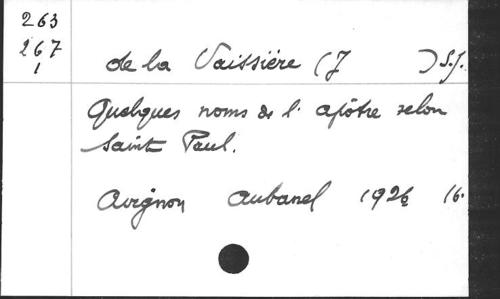 263
267
1
de la Vaissière (J ) S.J.
Quelques noms de l' apôtre selon
Saint Paul.
Avignon Aubanel 1926 16.